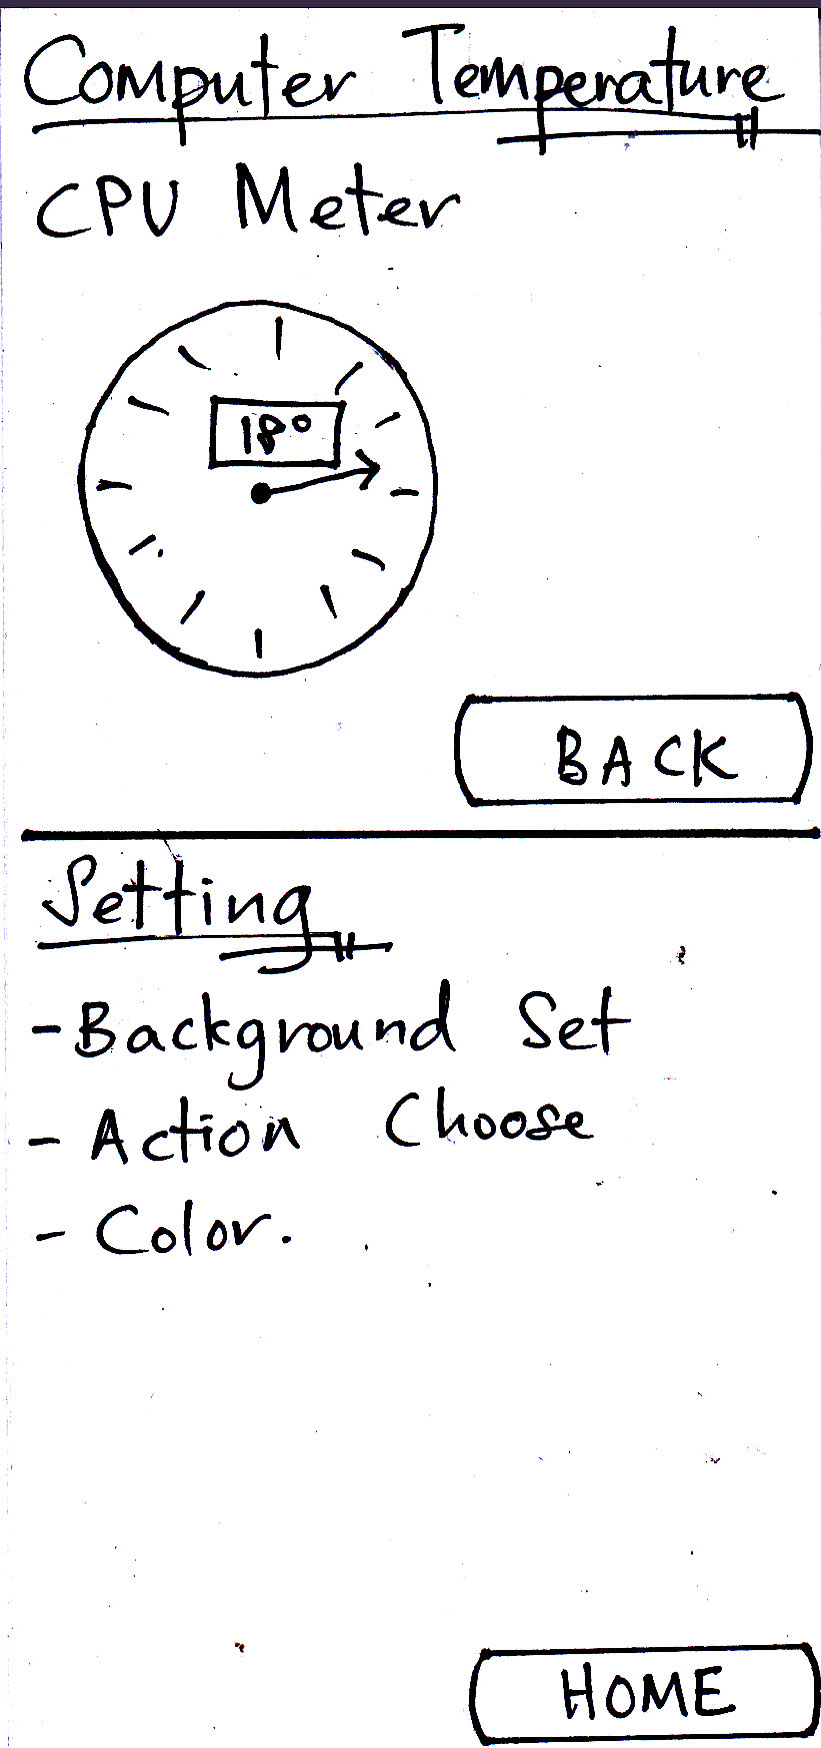 Computer Temperature
CPU Meter
18°
BACK
Setting
- Background Set
- Action Choose
- Color.
HOME